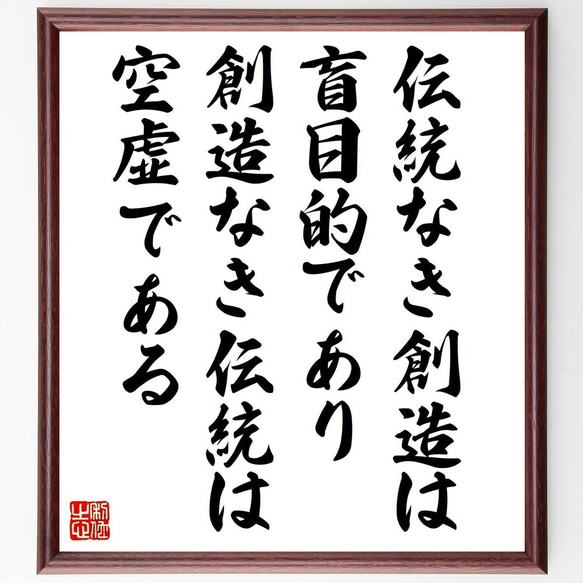 伝統なき創造は
盲目的であり
創造なき伝統は
空虚である